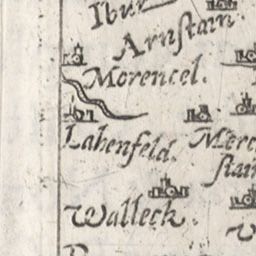 Ibur
Arnstain
Morencel.
Lahenfeld.
Merc
stain
Walleck.